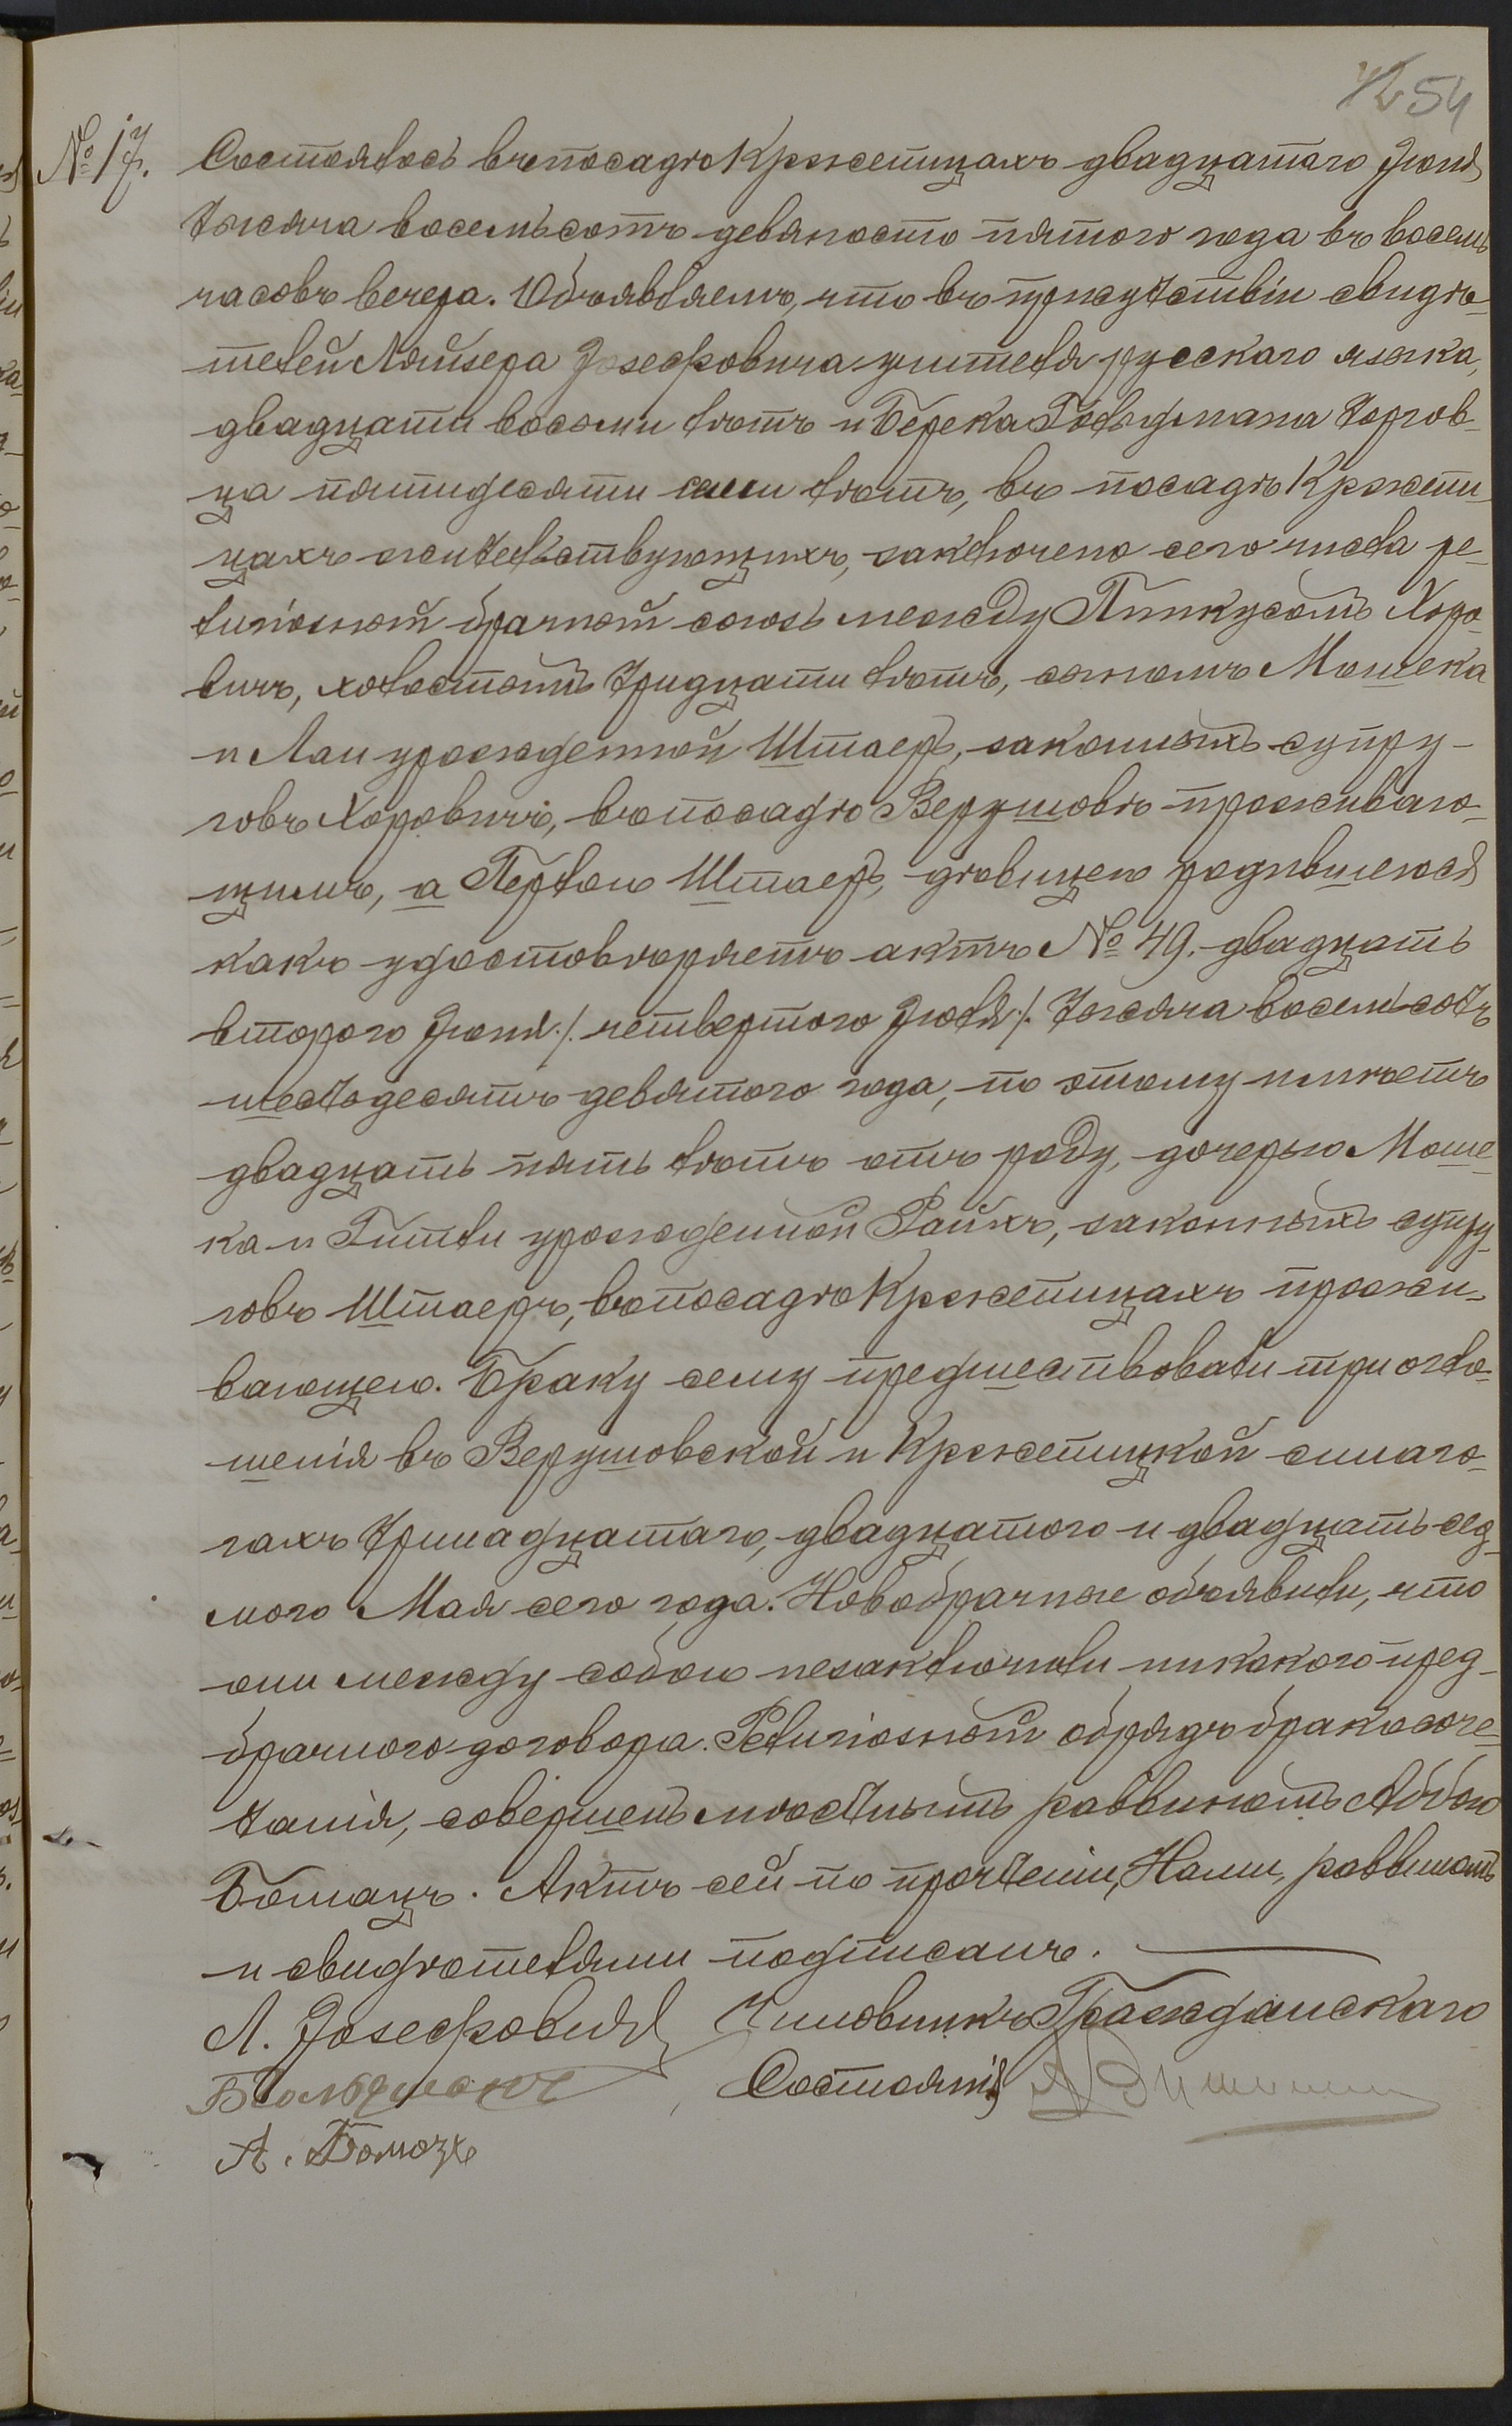 42 54
№ 17. Состоялось въ посадѣ Кржепицахъ двадцатаго Іюня
тысяча восемьсотъ девяносто пятого года въ восемь
часовъ вечера. Объявляемъ, что въ присутствіи свидѣ-
телей Ляйзера Іозефовича учителя русскаго языка,
двадцати восьми лѣтъ и Берека Гольдмана торгов-
ца пятидесяти семи лѣтъ, въ посадѣ Кржепи-
цахъ жительствующихъ, заключено сего числа ре-
лигіозный брачный союзъ между Пинкусомъ Хоро-
вичъ, холостымъ тридцати лѣтъ, сыномъ Мошека
и Лаи урожденной Штаеръ, законныхъ супру-
говъ Хоровичъ, въ посадѣ Верушовѣ прожива ю-
щимъ, а Перлою Штаеръ, дѣвицею родившеюся
какъ удостовѣряетъ актъ № 49. двадцать
второго Іюня ./. четвертого Іюля ./. тысяча восемьсотъ
шестьдесятъ девятого года, по этому имѣетъ
двадцать пять лѣтъ отъ роду, дочерью Моше-
ка и Гитли урожденной Райхъ, законныхъ супру-
говъ Штаеръ, въ посадѣ Кржепицахъ прожи-
вающею. Браку сему предшествовали три огло-
шенія въ Верушовской и Кржепицкой синаго-
гахъ тринадцатаго, двадцатого и двадцать сед-
мого Мая сего года. Новобрачные объявили, что
они между собою незаключили никакого пред-
брачного договора. Религіозный обрядъ бракосоче-
танія, совершенъ мѣстнымъ раввиномъ Аббою
Бомацъ. Актъ сей по прочтеніи, Нами, раввиномъ
и свидѣтелями подписанъ.
Л. Іозефовичъ Чиновникъ Гражданскаго
Б Гольдманъ Состоянія
А. Бомацъ